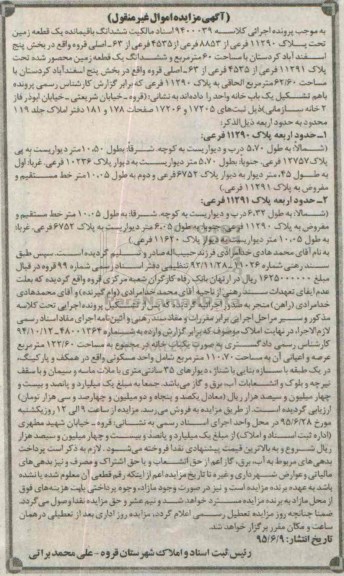 (آگهی مزایده اموال غیرمنقول)
به موجب پرونده اجرائی کلاسه ۹۴۰۰۰۳۹ اسناد مالکیت ششدانگ باقیمانده یک قطعه زمین
تحت پلاک ۱۱۲۹۰ فرعی از ۸۸۵۳ فرعی از ۴۵۳۵ فرعی از ۶۳-اصلی قروه واقع در بخش پنج
اسفند آباد کردستان با مساحت ۶۰ مترمربع و ششدانگ یک قطعه زمین محصور شده تحت
پلاک ۱۱۲۹۱ فرعی از ۴۵۳۵ فرعی از ۶۳-اصلی قروه واقع در بخش پنج اسفندآباد کردستان با
مساحت ۶۲/۶۰ مترمربع الحاقی به پلاک ۱۱۲۹۰ فرعی که برابر گزارش کارشناس رسمی پرونده
باهم تشکیل یک باب خانه واحد را داده‌اند به نشانی: (قروه-خیابان شریعتی-خیابان ابوذر فاز
۲ خانه سازمانی) ذیل ثبت‌های ۱۷۲۰۵ و ۱۷۲۰۶ صفحات ۱۷۸ و ۱۸۱ دفتر املاک جلد ۱۱۹
محدود به حدود اربعه ذیل الذکر:
۱-حدود اربعه پلاک ۱۱۲۹۰ فرعی:
(شمالا: به طول ۵٫۷۰ درب و دیواریست به کوچه. شرقا: بطول ۱۰٫۵۰ متر دیواریست به پی
پلاک ۱۲۷۵۷ فرعی. جنوبا: بطول ۵٫۷۰ متر دیواریست به دیوار پلاک ۱۰۲۳۶ فرعی. غربا: اول
به طول ۰٫۴۵ متر دیوار به دیوار پلاک ۶۷۵۲ فرعی و دوم به طول ۱۰٫۰۵ متر خط مستقیم و
مفروض به پلاک ۱۱۲۹۱ فرعی.)
۲-حدود اربعه پلاک ۱۱۲۹۱ فرعی:
(شمالا: به طول ۶٫۳۲ درب و دیواریست به کوچه. شرقا: به طول ۱۰٫۰۵ متر خط مستقیم و
مفروض به پلاک ۱۱۲۹۰ فرعی. جنوبا: به طول ۶٫۰۵ متر دیواریست به پلاک ۶۷۵۲ فرعی. غربا:
به طول ۱۰٫۰۵ متر دیواریست به دیوار پلاک ۱۱۶۲۰ فرعی.)
به نام آقای محمد هادی خدامرادی فرزند حبیب‌اله صادر و تسلیم گردیده است. سپس طبق
سند رهنی شماره ۲۱۰۲۶-۹۲/۱۱/۲۸ تنظیمی دفتر اسناد رسمی شماره ۹۹ قروه در قبال
مبلغ ۱۶۲۵۰۰۰۰۰۰ ریال در ارتهان بانک رفاه کارگران شعبه مرکزی قروه واقع گردیده که بعلت
عدم ایفای تعهدات سند رهنی از ناحیه آقای محمد خدامرادی (وام گیرنده) و آقای محمدهادی
خدامرادی (راهن) منتجر به صدور اجرائیه گردیده که پس از تشکیل پرونده اجرایی تحت کلاسه
مذکور و سیر مراحل اجرایی برابر مقررات و مفاد سند رهنی و آئین‌نامه اجرای مفاد اسناد رسمی
لازم‌الاجرا، در نهایت املاک موضوف که برابر گزارش وارده به شماره ۴۸۰۰۱۳۶۴-۹۴/۱۰/۱۲
کارشناس رسمی دادگستری به صورت یکباب خانه در مجموع به مساحت ۱۲۲/۶۰ مترمربع
عرصه و اعیانی آن به مساحت ۱۱۰٫۷۰ مترمربع شامل واحد مسکونی واقع در همکف و پارکینگ،
در یک طبقه با سازه بنایی با شناژ، دیوارهای ۳۵ سانتی‌متری با ملات ماسه و سیمان و با سقف
تیرچه و بلوک و انشعابات آب، برق و گاز می‌باشد. جمعا به مبلغ یک میلیارد و پانصد و بیست و
چهار میلیون و سیصد هزار ریال (معادل یکصد و پنجاه و دو میلیون و چهارصد و سی هزار تومان)
ارزیابی گردیده است. از طریق مزایده به فروش می‌رسد. مزایده از ساعت ۹ الی ۱۲ روز یکشنبه
مورخ ۹۵/۶/۲۸ در محل واحد اجرای اسناد رسمی به نشانی: قروه-خیابان شهید مطهری
(اداره ثبت اسناد و املاک) از مبلغ یک میلیارد و پانصد و بیست و چهار میلیون و سیصد هزار
ریال شروع و به بالاترین قیمت پیشنهادی نقدا فروخته می‌شود. لازم به ذکر است پرداخت
بدهی‌های مربوط به آب، برق، گاز اعم از حق انشعاب و یا حق اشتراک و مصرف و نیز بدهی‌های
مالیاتی و عوارض شهرداری و غیره تا تاریخ مزایده اعم از اینکه رقم قطعی آن معلوم شده یا نشده
باشد به عهده برنده مزایده است و نیز در صورت وجود مازاد، وجوه پرداختی بابت هزینه‌های فوق
از محل مازاد به برنده مزایده مسترد خواهد شد و نیم عشر و حق مزایده نقدا وصول می‌گردد.
ضمنا چنانچه روز مزایده تعطیل رسمی اعلام گردد، مزایده روز اداری بعد از تعطیلی در همان
ساعت و مکان مقرر برگزار خواهد شد.
تاریخ انتشار: ۹۵/۶/۹
رئیس ثبت اسناد و املاک شهرستان قروه-علی محمد براتی